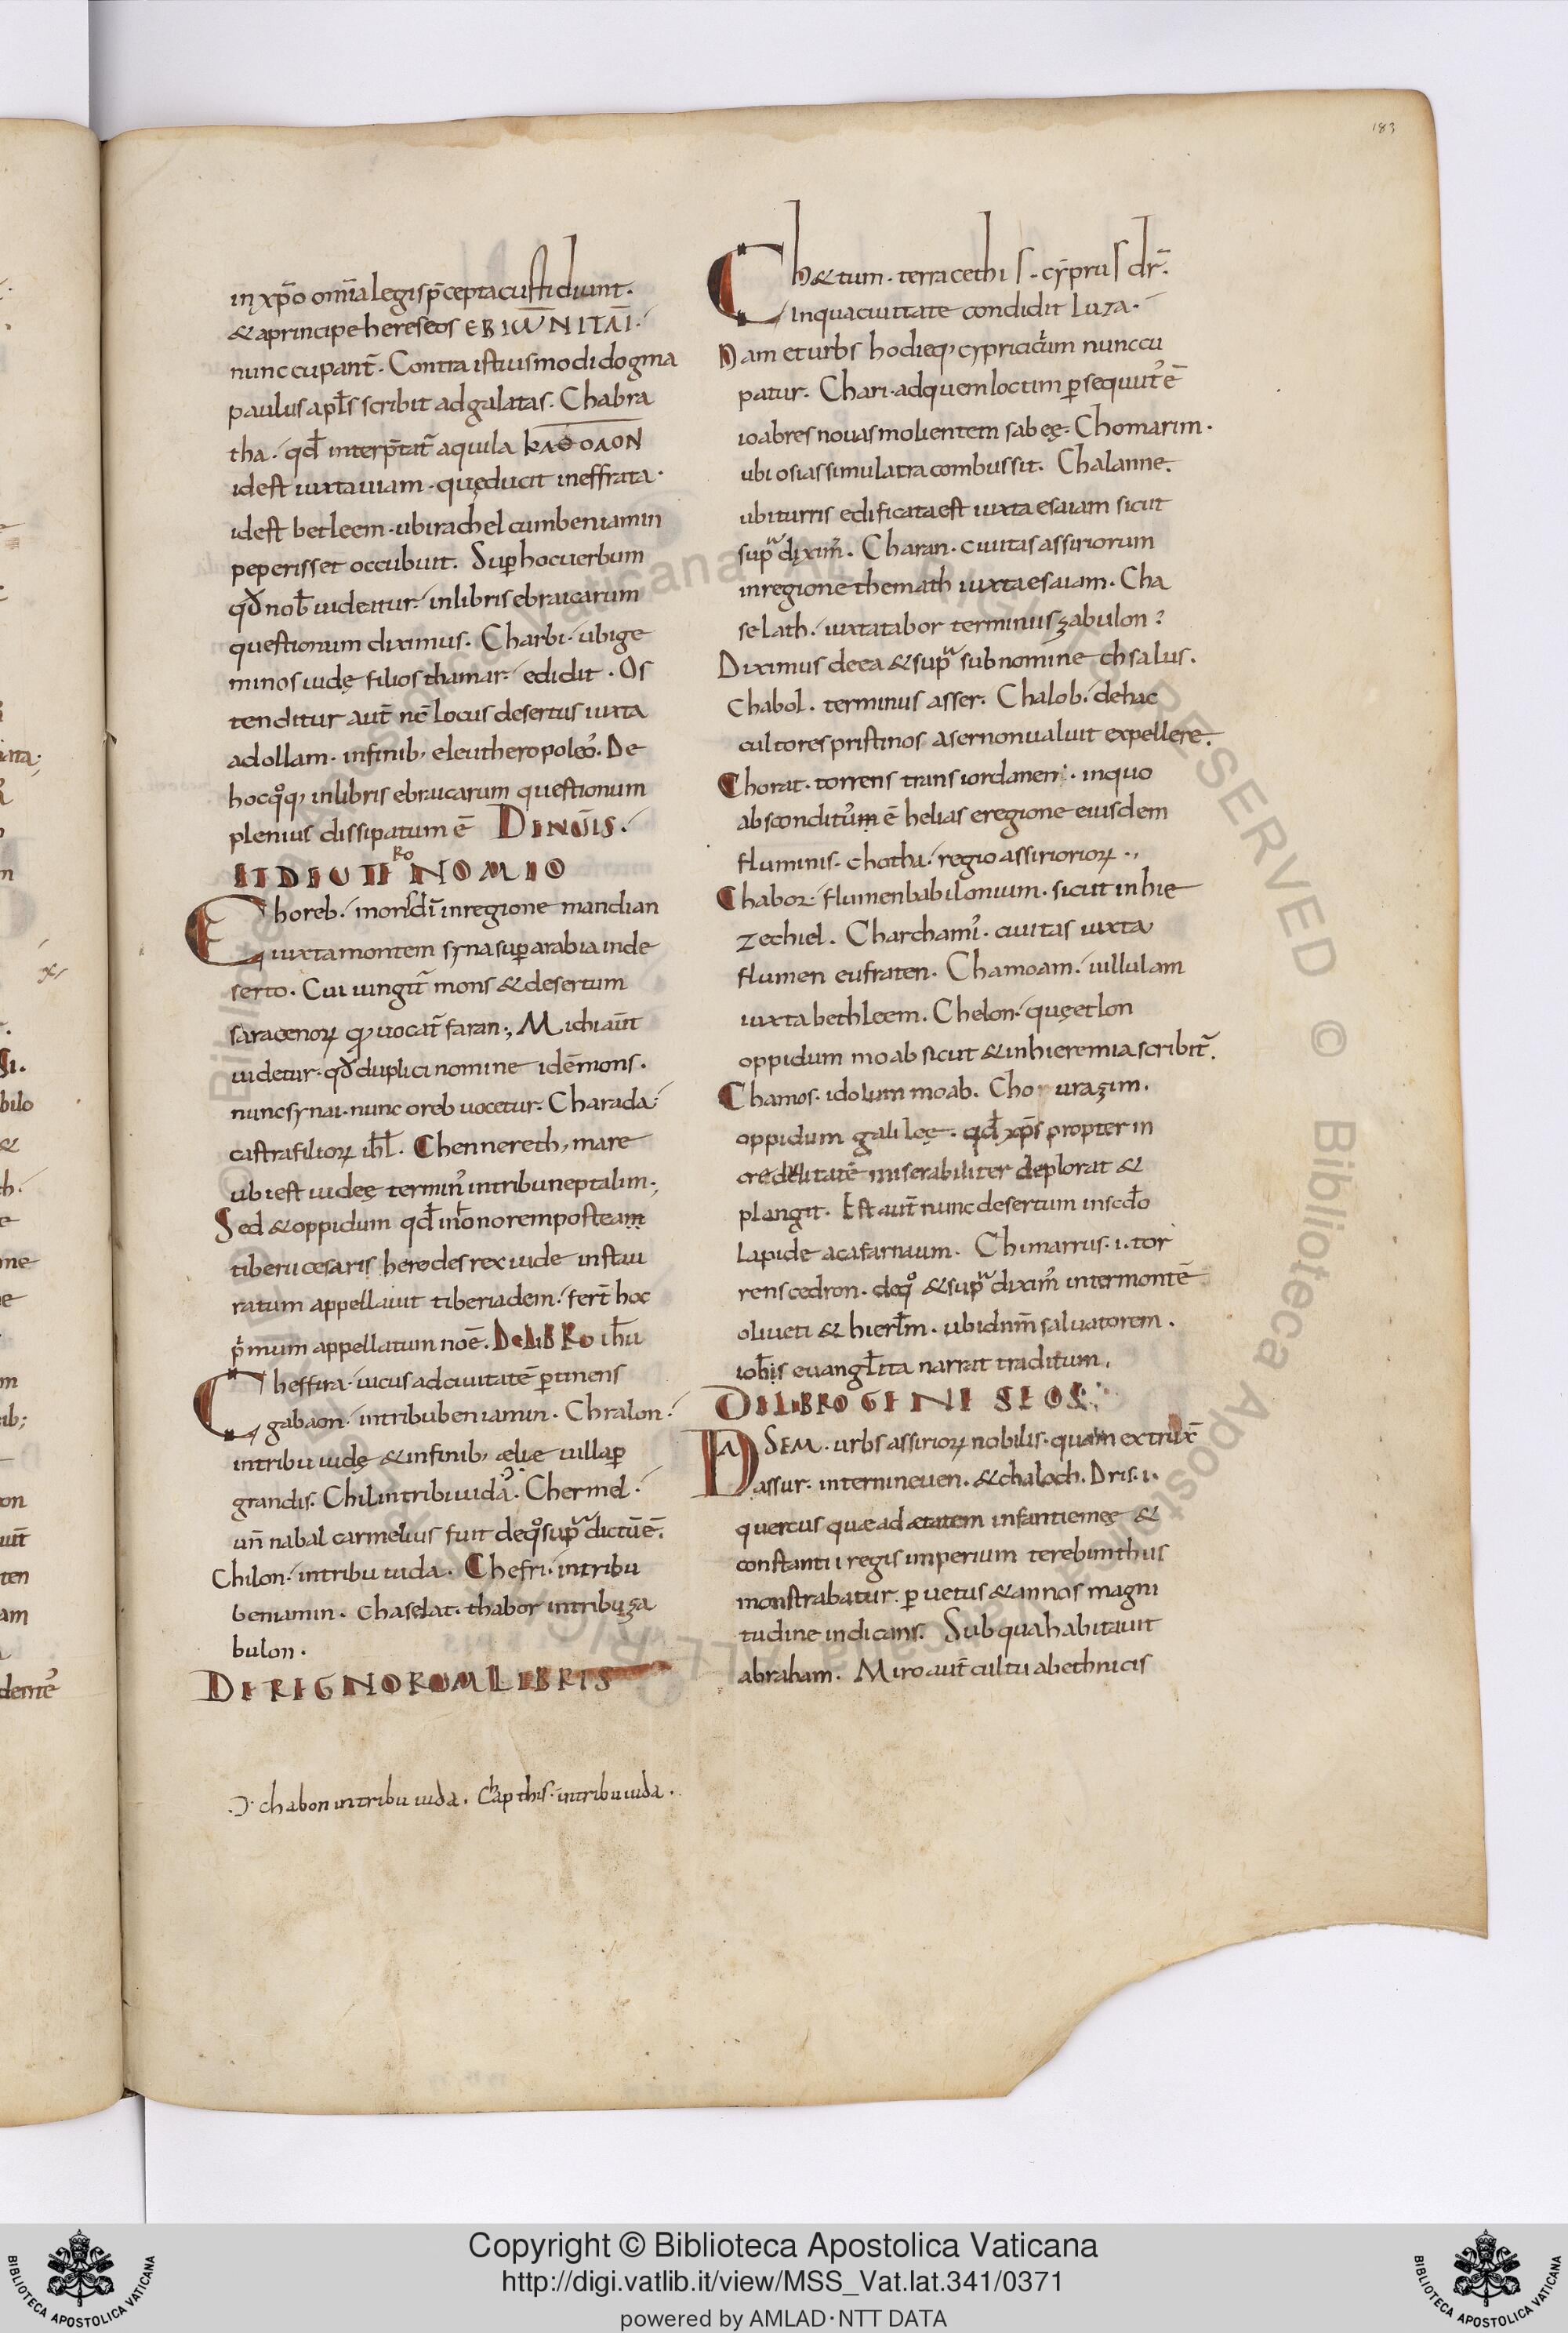 183
in xp̄o om̄ia legis p̄cepta custidiunt.
& a principe hereseos EBIѠNITΛI.
nunccupant̄. Contra istius modi dogma
paulus apl̄s scribit ad galatas. Chabra
tha. qđ interp̄tat̄ aquila kΛΘOΛON
idest iuxta uiam. quę ducit in effrata.
idest betleem. ubi rachel cum beniamin
peperisset occubuit. Suꝑ hoc uerbum
qđ nob̄ uidetur. in libris ebraicarum
questionum diximus. Charbi. ubi ge
minos iudę filios thamar. edidit. Os
tenditur aut̄ nc̄ locus desertus iuxta
adollam. in finib; eleutheropoleos. De
hoc q̊q; in libris ebraicarum questionum
plenius dissipatum ē DENUIS.
ET DEUTERONOMIO
Choreb. mons dī in regione mandian
iuxta montem syna suꝑ arabia in de
serto. Cui iungit̄ mons & desertum
saracenoꝝ qđ uocat̄ faran; Michi aūt
uidetur. qđ duplici nomine idē mons.
nunc synai. nunc oreb uocetur. Charada.
castra filioꝝ ihl̄. Chennereth, mare
ubi est iudeę terminꝰ in tribu neptalim;
Sed & oppidum qđ in honorem posteam
tiberii cesaris herodes rex iude instau
ratum appellauit tiberiadem. fert̄ hoc
p̄mum appellatum noē. DeLIBRo ih̄u
Cheffira. uicus ad ciuitatē ꝑtinens
gabaon. in tribu beniamin. Chralon.
in tribu iudę & in finib; æliæ uilla ꝑ
grandis. Chil in tribu iuda. Chermel.
un̄ nabal carmelius fuit de q̊ sup̄ dictū ē.
Chilon. in tribu iuda. Chefri. in tribu
beniamin. Chaselat. thabor in tribu za
bulon.
DE REGNORUM LIBRIS
Ɔ chabon in tribu iuda. Chapthis. in tribu iuda.
Ch&tum. terra cethis. cyprus dr̄.
In qua ciuitate condidit luza.
Nam et urbs hodieq; cypri cicium nunccu
patur. Chari. ad quem locum ꝑsequutꝰ ē
ioab res nouas molientem sabeę. Chomarim.
ubi osias simulatra combussit. Chalanne.
ubi turris edificata est iuxta esaiam sicut
supᵃ diximꝰ. Charan. ciuitas assiriorum
in regione themath iuxta esaiam. Cha
selath. iuxta tabor terminus zabulon?
Diximus de ea & supᵃ sub nomine chsalus.
Chabol. terminus asser. Chalob. de hac
cultores pristinos aser non ualuit expellere.
Chorat. torrens trans iordanen. in quo
absconditum ē helias e regione eiusdem
fluminis. chotha. regio assirioriorꝝ.
Chabor. flumen babilonium. sicut in hie
zechiel. Charchamꝰ. ciuitas iuxta
flumen eufraten. Chamoam. uillulam
iuxta bethleem. Chelon. quę et lon
oppidum moab sicut & in hieremia scribit̄.
Chamos. idolum moab. Cho urazim.
oppidum galileę. qđ xp̄s propter in
credelitatē miserabiliter deplorat &
plangit. Est aut̄ nunc desertum in scđo
lapide a cafarnaum. Chimarrus. i. tor
rens cedron. de q̊ & supᵃ diximꝰ inter montē
oliueti & hierl̄m. ubi dn̄m saluatorem.
ioh̄is euangl̄ita narrat traditum.
DE LIBRO GENESEOS.
DASEM. urbs assirioꝝ nobilis. quam extrux̄
assur. inter nineuen. & chaloch. Dris. i.
quercus quæ ad ætatem infantie meę &
constantii regis imperium terebinthus
monstrabatur. ꝑ uetus & annos magni
tudine indicans. Sub qua habitauit
abraham. Miro aut̄ cultu ab ethnicis
Copyright © Biblioteca Apostolica Vaticana
http://digi.vatlib.it/view/MSS_Vat.lat.341/0371
powered by AMLAD·NTT DATA
BIBLIOTECA APOSTOLICA VATICANA
BIBLIOTECA APOSTOLICA VATICANA